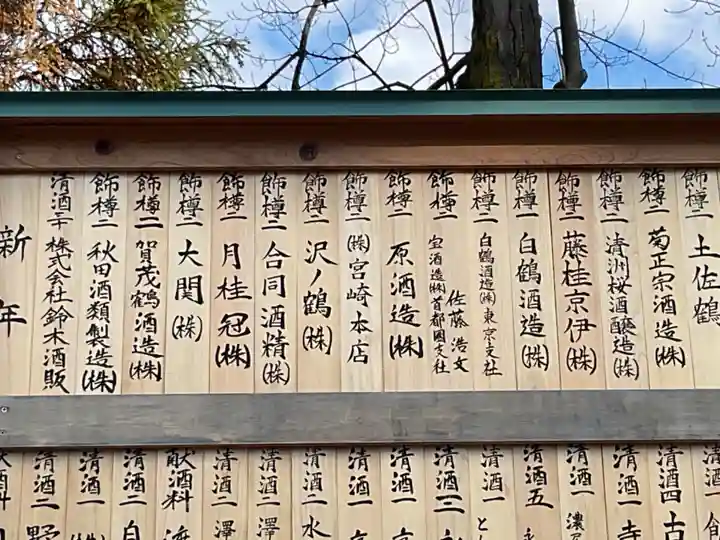 飾樽二 土佐鶴
飾樽二 菊正宗酒造(株)
飾樽二 清洲桜酒醸造(株)
飾樽二 藤桂京伊(株)
飾樽二 白鶴酒造(株)
飾樽二 白鶴酒造(株)東京支社
飾樽二 宝酒造(株)首都圏支社 佐藤浩文
飾樽二 原酒造(株)
飾樽二 (株)宮崎本店
飾樽二 沢ノ鶴(株)
飾樽二 合同酒精(株)
飾樽二 月桂冠(株)
飾樽二 大関(株)
飾樽二 賀茂鶴酒造(株)
飾樽二 秋田酒類製造(株)
清酒二千 株式会社鈴木酒販
新年
清酒一
清酒四 古
清酒一 寺
清酒一 濃
清酒五
清酒一 と
清酒三
清酒一
清酒一
清酒二 水
清酒二 澤
清酒一 澤
献酒料
清酒二 白
清酒一 (株)
清酒二 野
献酒料